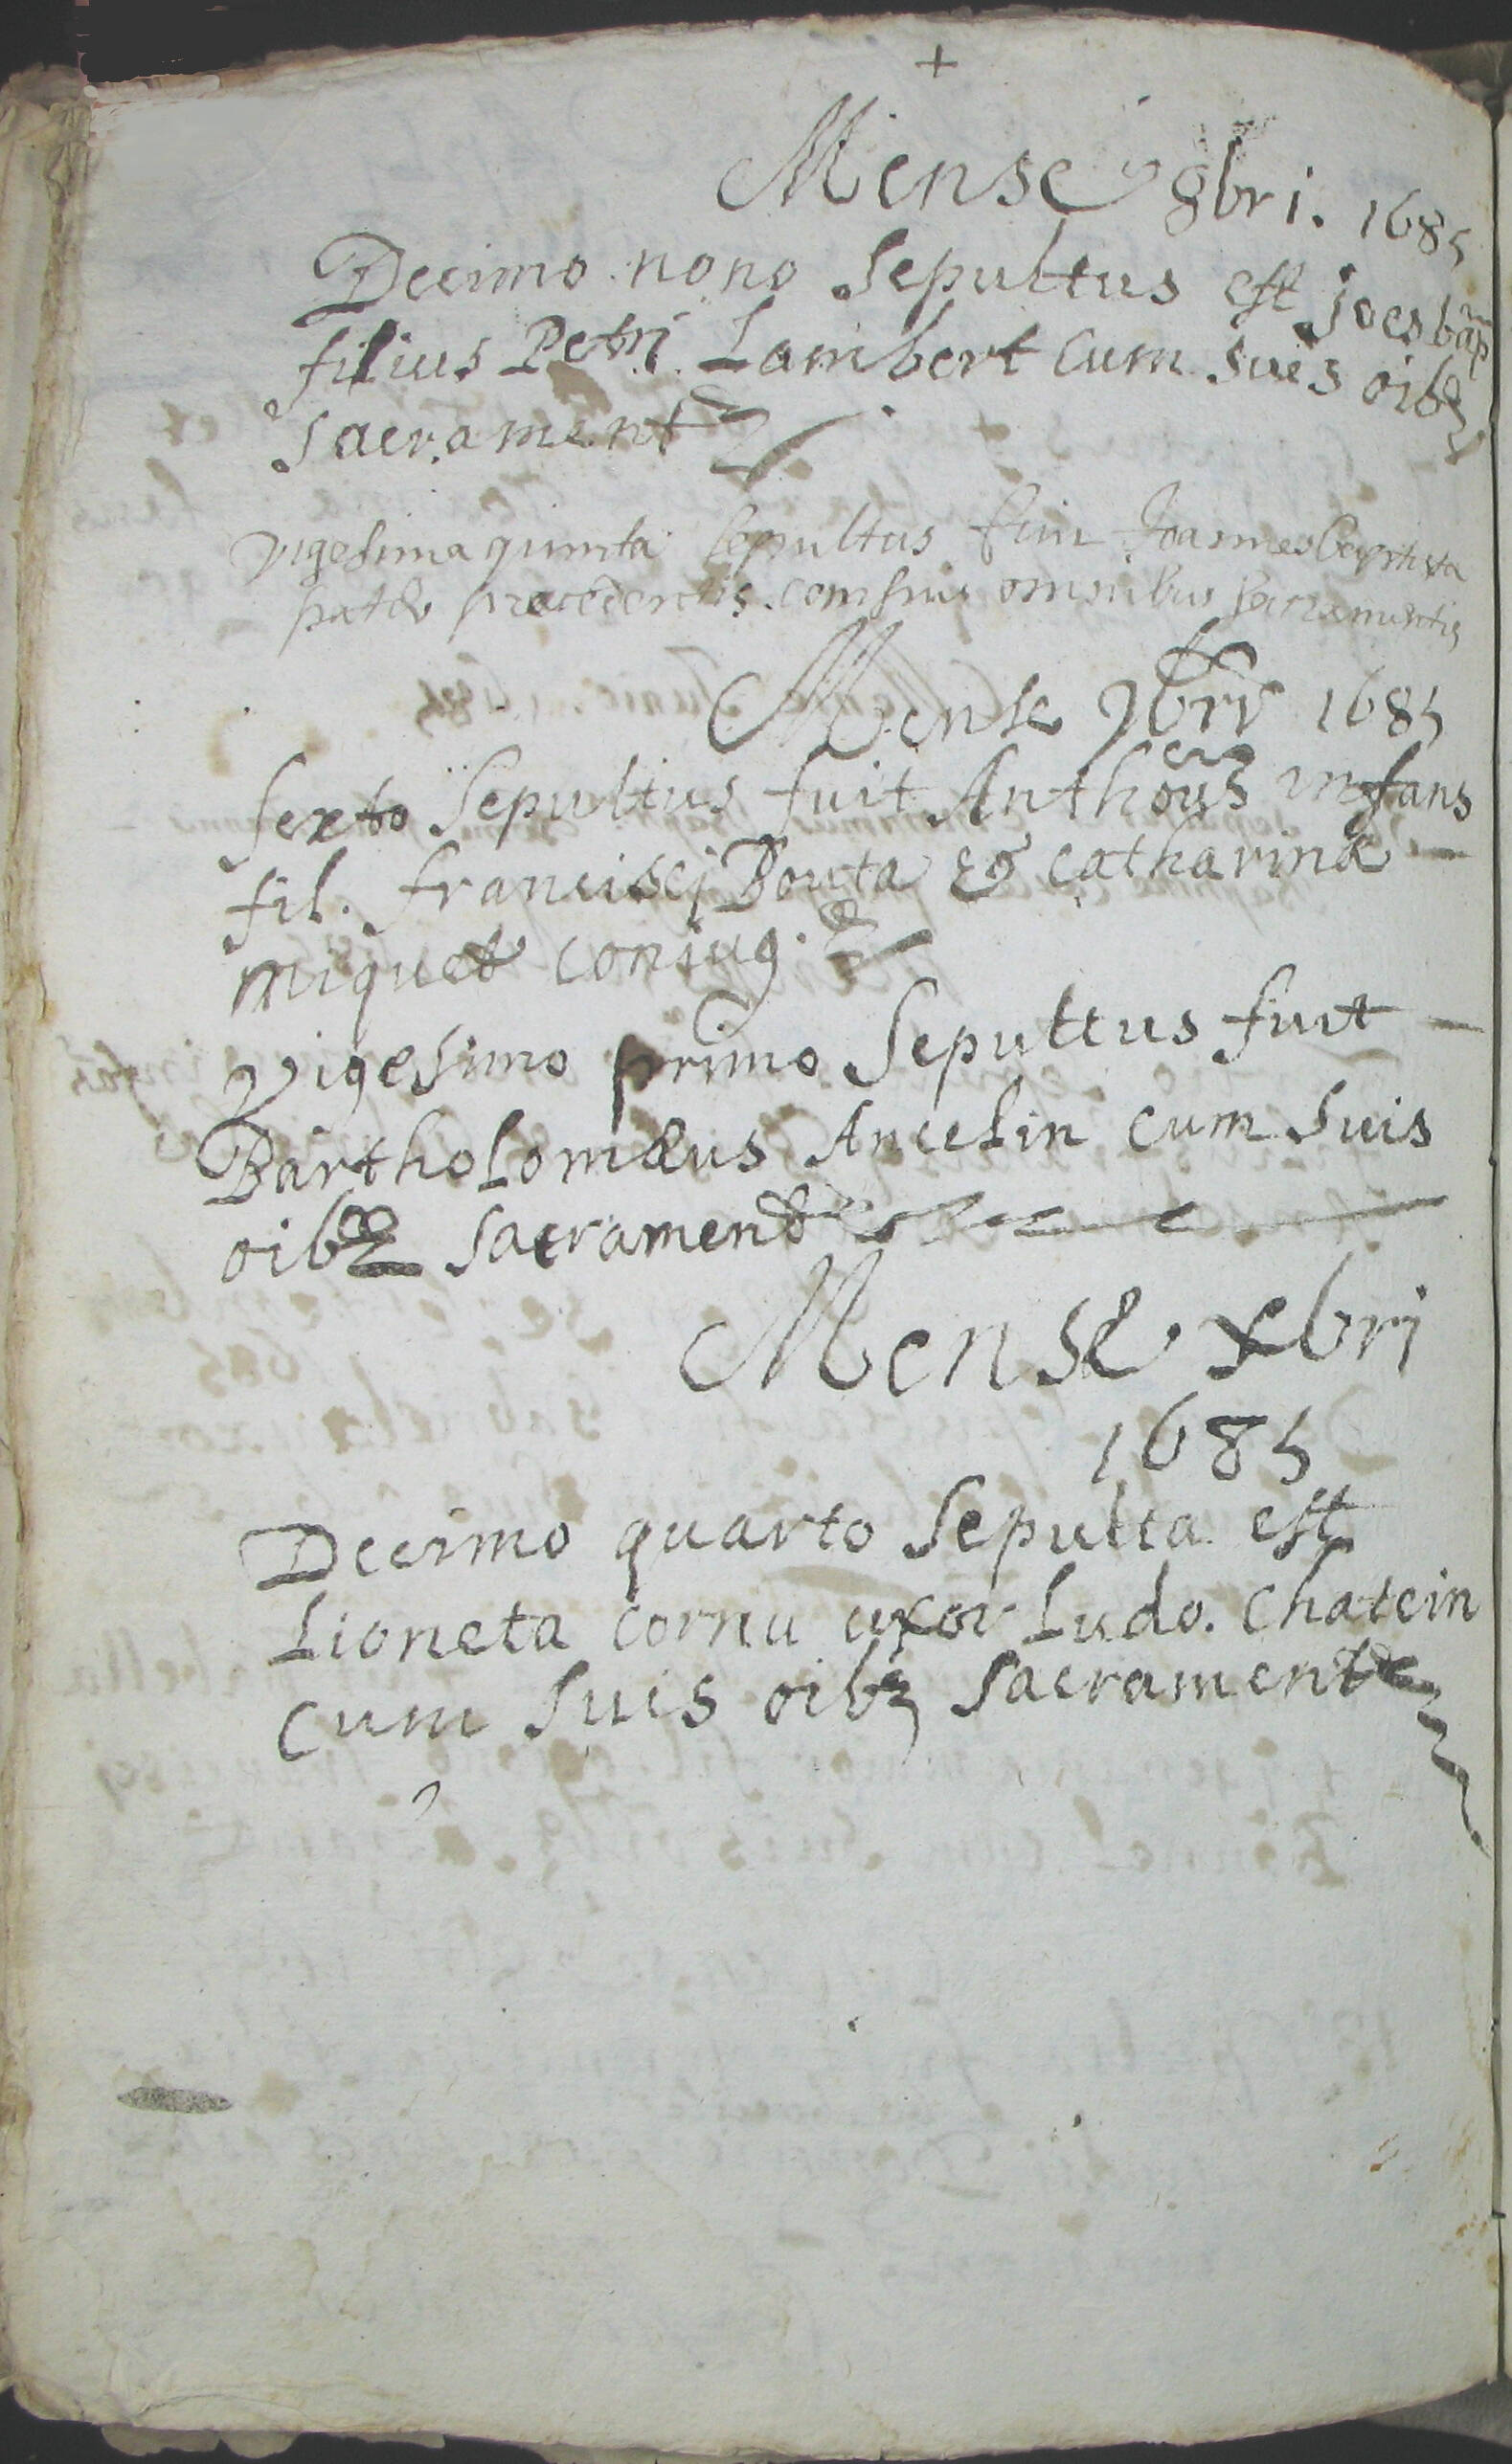 +
Mense 8bri. 1685
Decimo nono Sepultus est joes bap
filius Petri Lambert Cum Suis oibz
Sacrament
vigesima quinta sepultus fuit Joannes baptista
pater praecedentis cum suis omnibus sacramentis
Mense 9bris 1685
Sexto Sepultus fuit Anthoüs infans
fil. francisci Bouta & catharina
miquet conjug.
vigesimo primo Sepultus fuit
Bartholomæus Ancelin cum Suis
oibz Sacrament
Mense xbri
1685
Decimo quarto Sepulta est
Lioneta cornu uxor Ludo. Chatein
Cum Suis oibz Sacrament